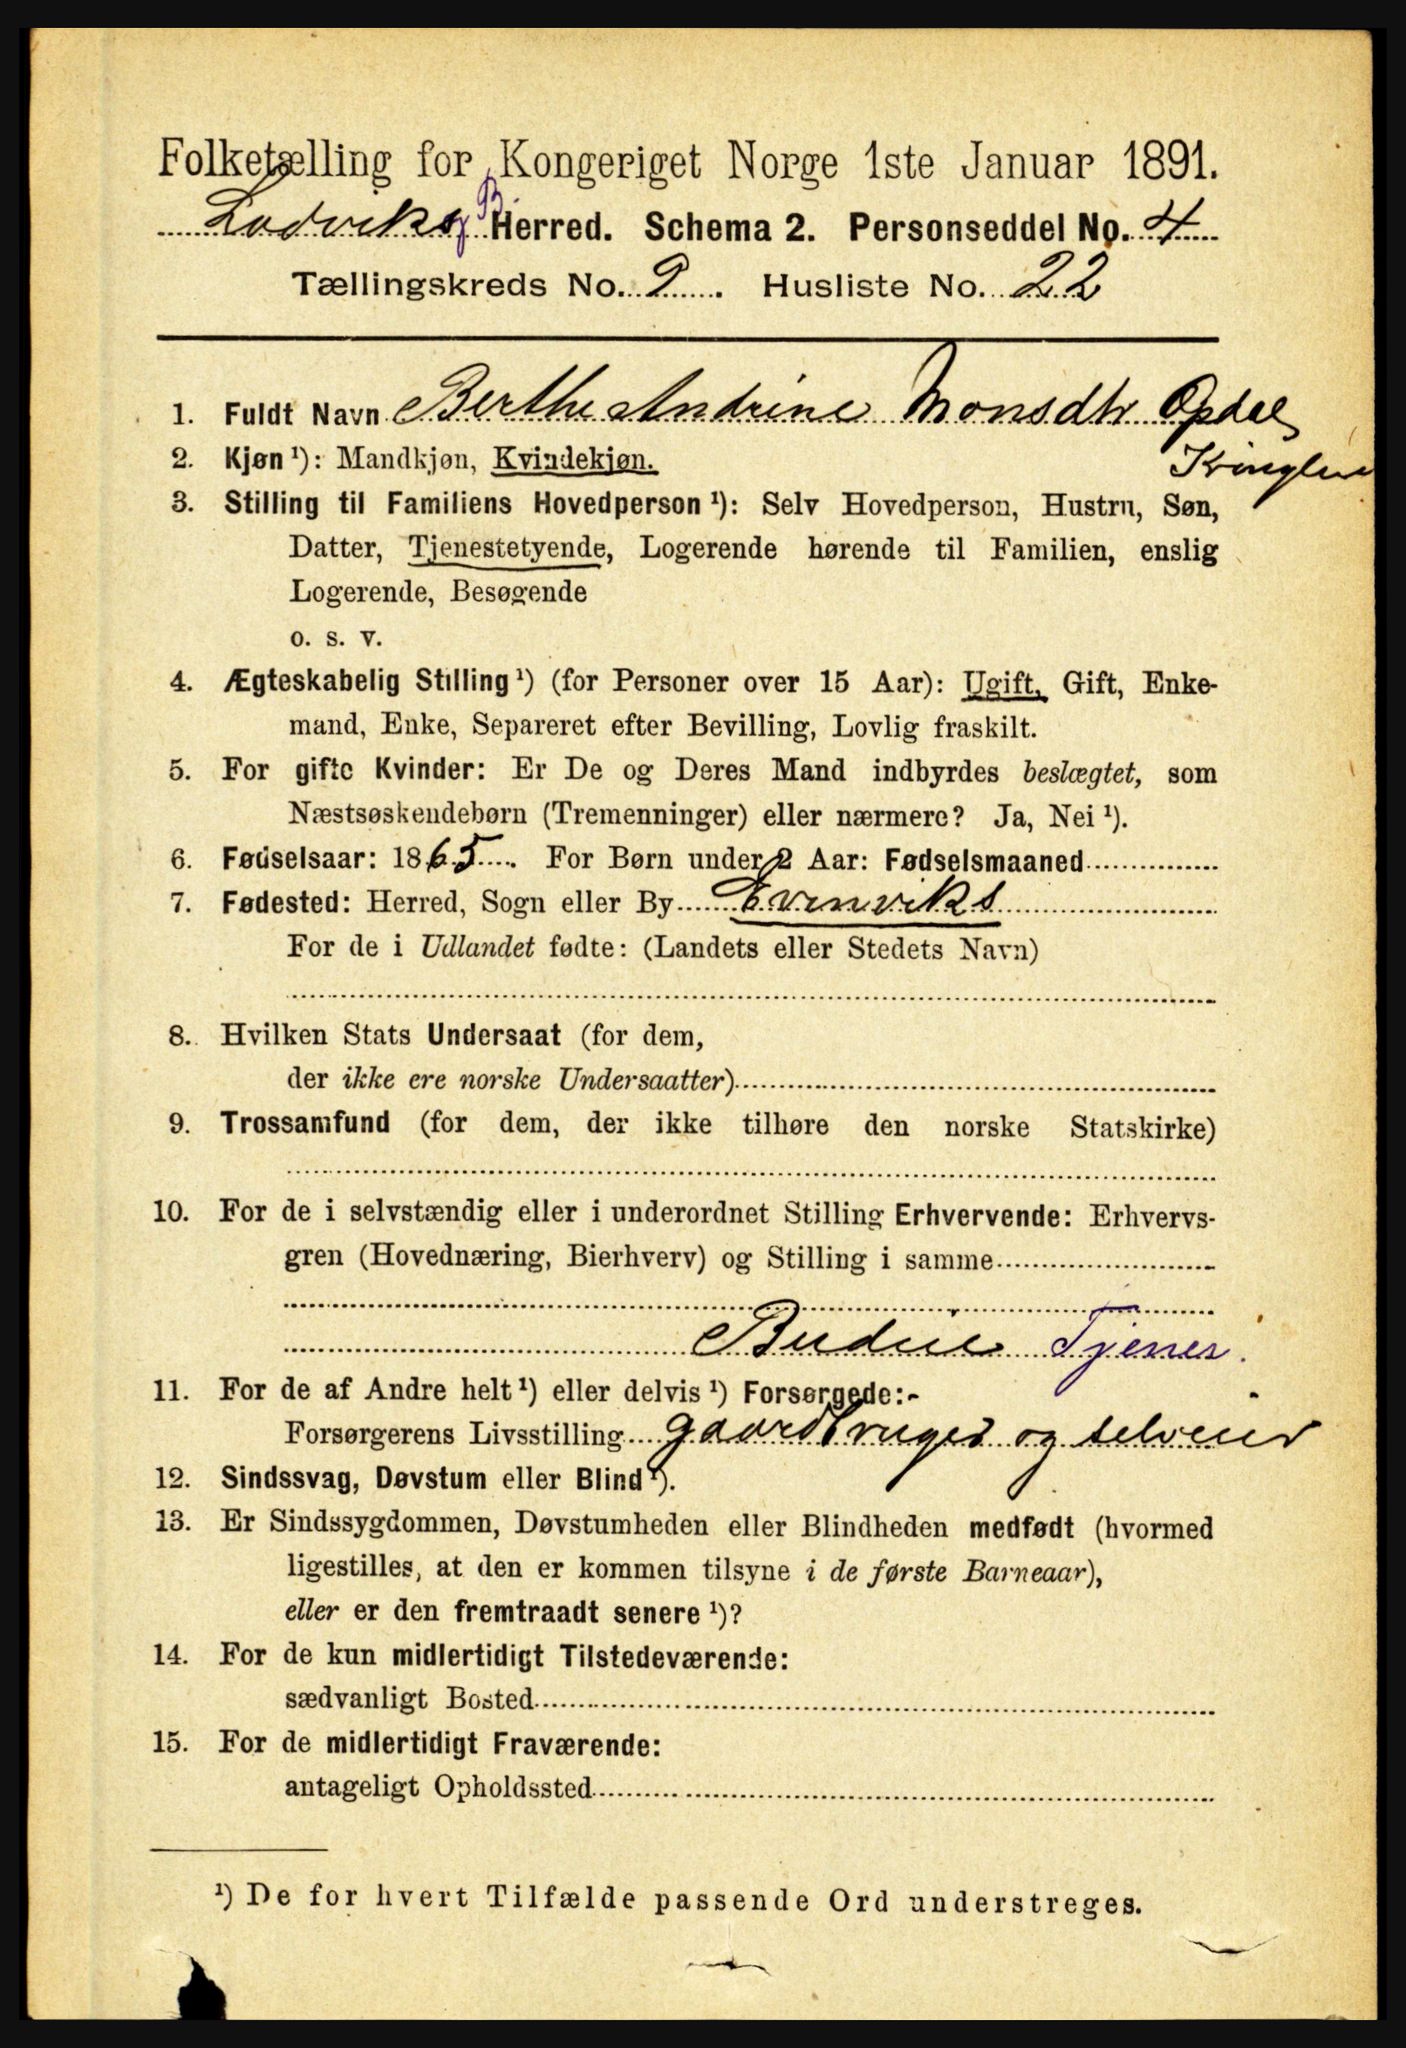 Folketælling for Kongeriget Norge 1ste Januar 1891.
B.
Ladviks Herred. Schema 2. Personseddel No. 4
Tællingskreds No. 9. Husliste No. 22
1. Fuldt Navn Berthe Andrine Monsdtr Opdal
2. Kjøn ¹): Mandkjøn, Kvindekjøn.
3. Stilling til Familiens Hovedperson ¹): Selv Hovedperson, Hustru, Søn,
Datter, Tjenestetyende, Logerende hørende til Familien, enslig
Logerende, Besøgende
o. s. v.
4. Ægteskabelig Stilling ¹) (for Personer over 15 Aar): Ugift, Gift, Enke-
mand, Enke, Separeret efter Bevilling, Lovlig fraskilt.
5. For gifte Kvinder: Er De og Deres Mand indbyrdes beslægtet, som
Næstsøskendebørn (Tremenninger) eller nærmere? Ja, Nei ¹).
6. Fødselsaar: 1865. For Børn under 2 Aar: Fødselsmaaned
7. Fødested: Herred, Sogn eller By Evenviks
For de i Udlandet fødte: (Landets eller Stedets Navn)
8. Hvilken Stats Undersaat (for dem,
der ikke ere norske Undersaatter)
9. Trossamfund (for dem, der ikke tilhøre den norske Statskirke)
10. For de i selvstændig eller i underordnet Stilling Erhvervende: Erhvervs-
gren (Hovednæring, Bierhverv) og Stilling i samme
Budeie Tjener.
11. For de af Andre helt ¹) eller delvis ¹) Forsørgede:-
Forsørgerens Livsstilling gaardbruger og selveier
12. Sindssvag, Døvstum eller Blind ¹).
13. Er Sindssygdommen, Døvstumheden eller Blindheden medfødt (hvormed
ligestilles, at den er kommen tilsyne i de første Barneaar),
eller er den fremtraadt senere ¹)?
14. For de kun midlertidigt Tilstedeværende:
sædvanligt Bosted
15. For de midlertidigt Fraværende:
antageligt Opholdssted
¹) De for hvert Tilfælde passende Ord understreges.